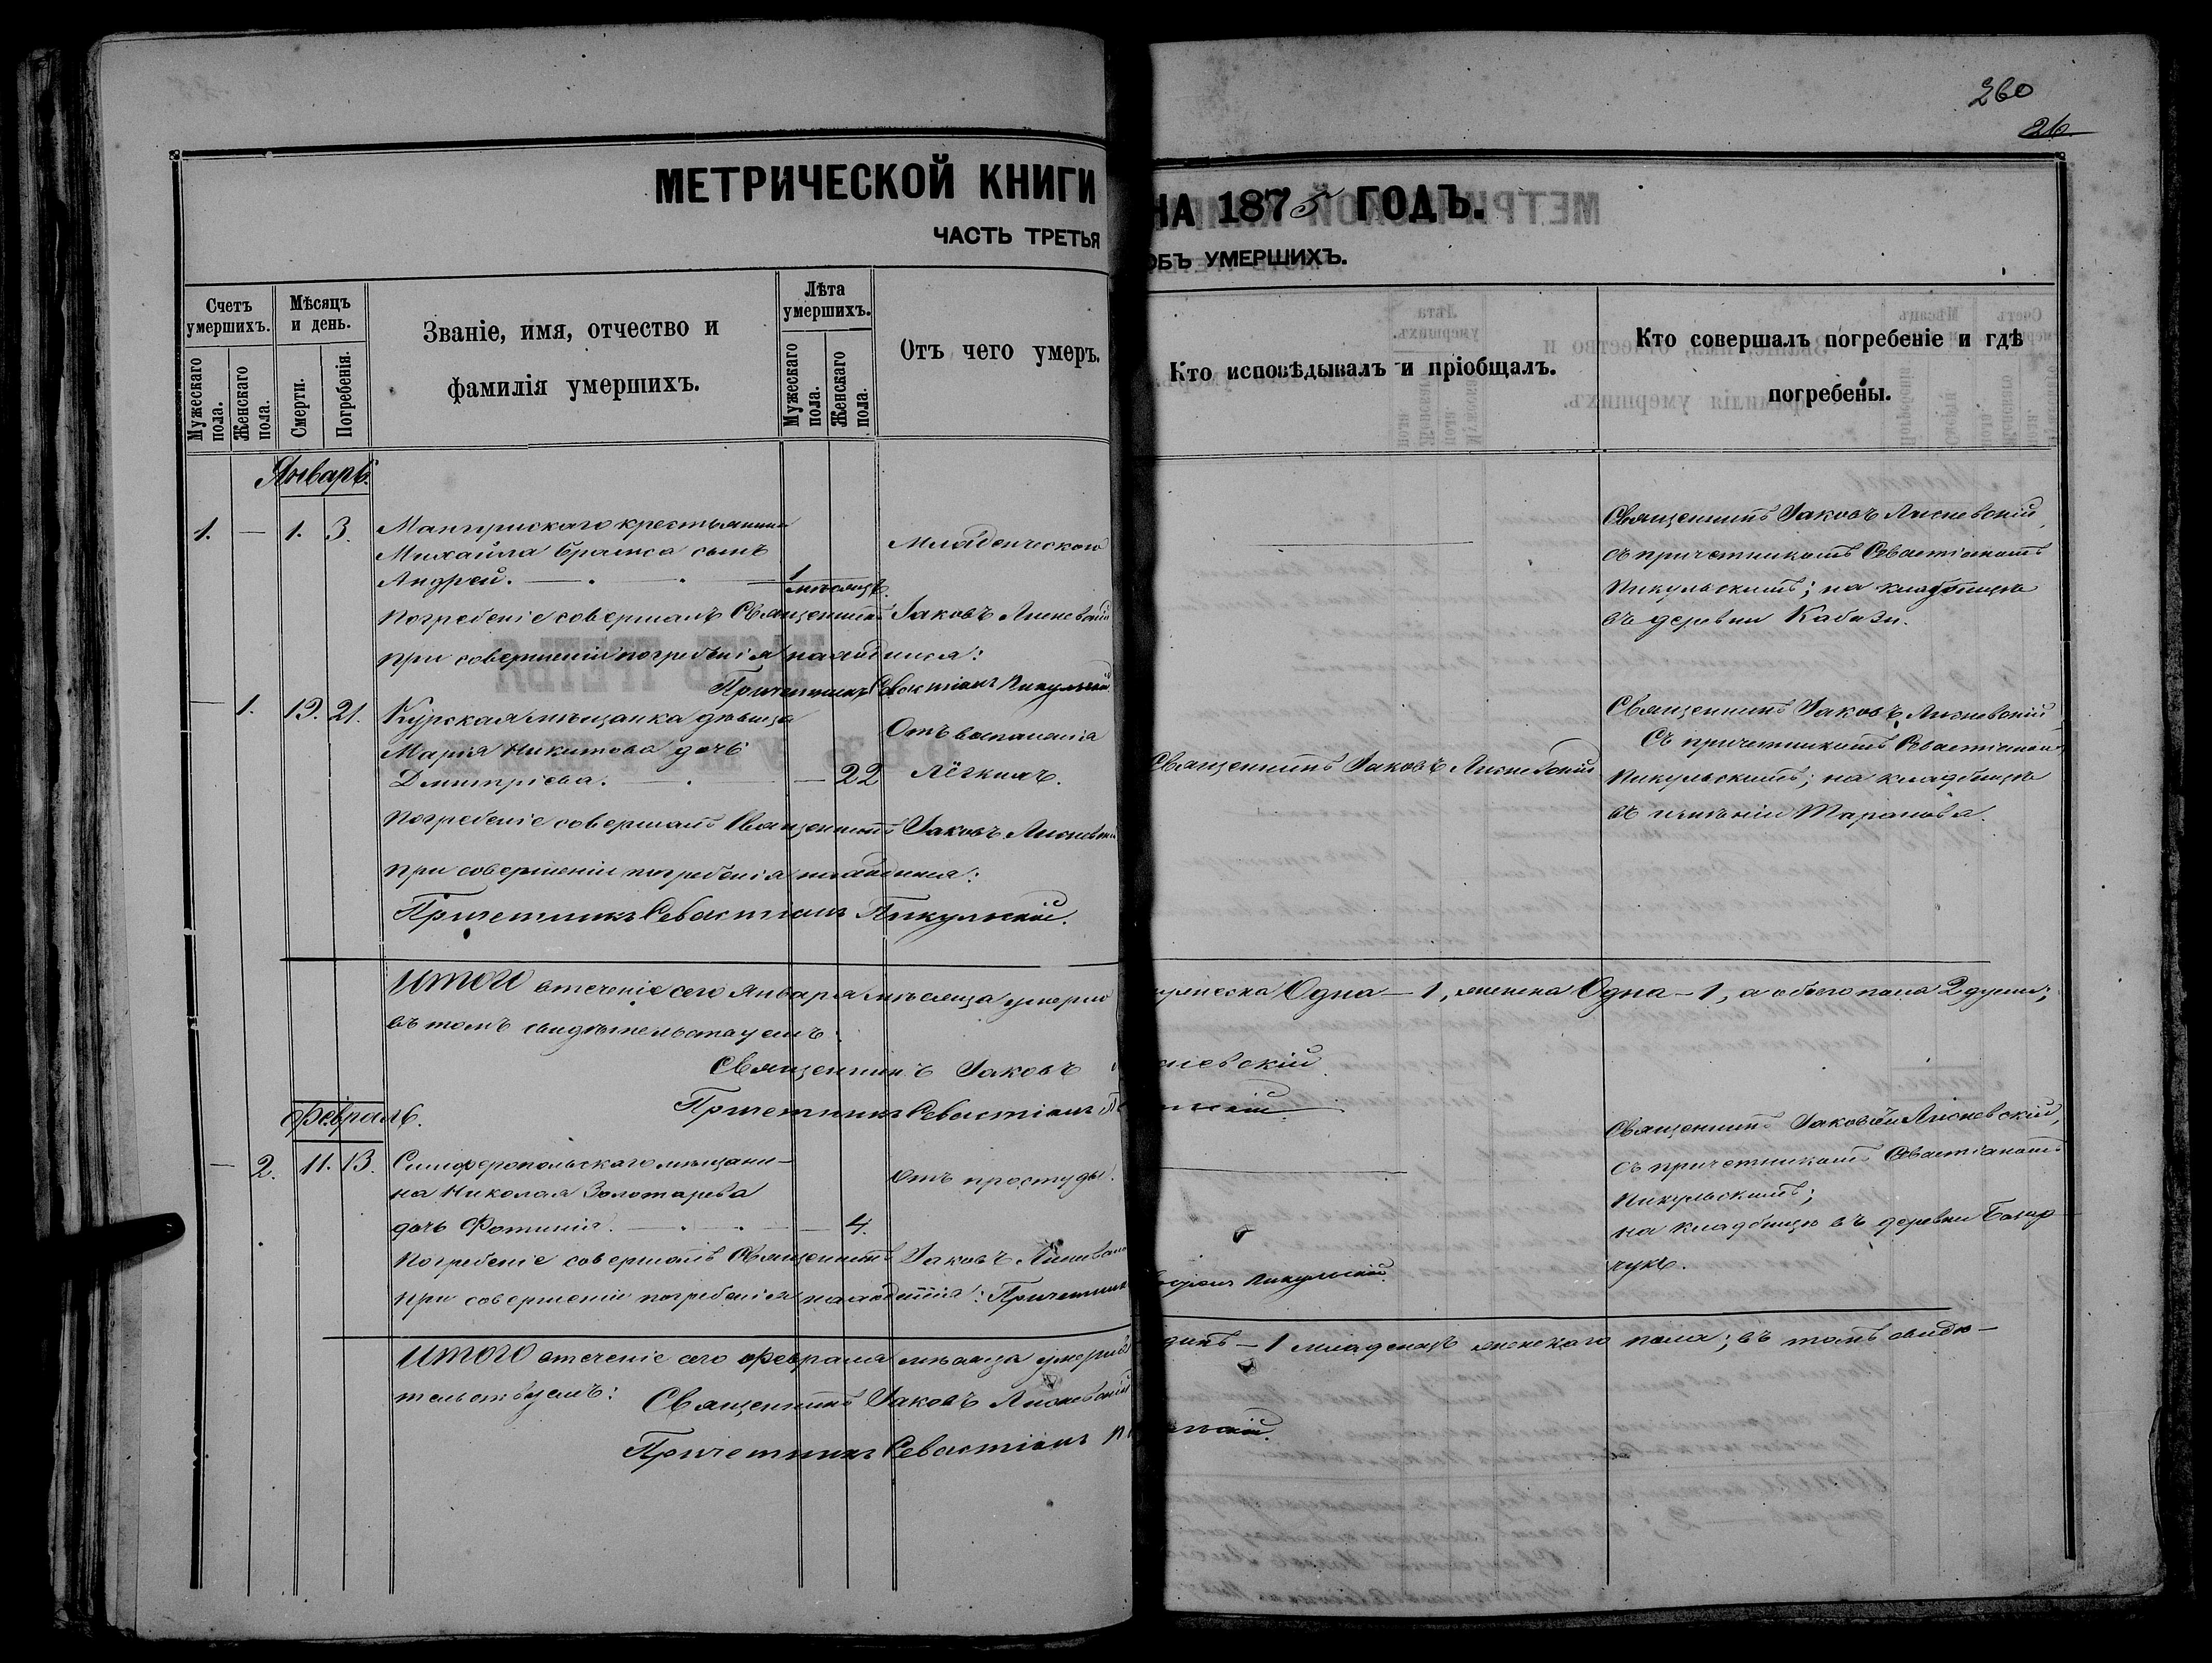 260
26
МЕТРИЧЕСКОЙ КНИГИ НА 1875 ГОДЪ.
ЧАСТЬ ТРЕТЬЯ ОБЪ УМЕРШИХЪ.
Счетъ умершихъ.
Мужескаго пола.
Женскаго пола.
Мѣсяцъ и день.
Смерти.
Погребенія.
Званіе, имя, отчество и
фамилія умершихъ.
Лѣта умершихъ.
Мужескаго пола.
Женскаго пола.
Отъ чего умеръ.
Кто исповѣдывалъ и пріобщалъ.
Кто совершалъ погребеніе и гдѣ
погребены.
Январь.
1. — 1. 3.
крестьянина
Михаила сынъ
Андрей.
1 мѣсяцъ.
Младенческаго
Священникъ Іаковъ Лисневскій
съ причетникомъ Севастіаномъ
Пикульскимъ; на кладбищѣ
въ деревни
Погребеніе совершалъ Священникъ Іаковъ Лисневскій
при совершеніи погребенія находился:
Причетникъ Севастіанъ Пикульскій.
— 1. 19. 21.
Курская мѣщанка дѣвица
Марія Никитова дочь
Дмитріева. — 22
Отъ воспаленія
лёгкихъ.
Священникъ Іаковъ Лисневскій
Священникъ Іаковъ Лисневскій
Съ причетникомъ Севастіаномъ
Пикульскимъ; на кладбищѣ
въ имѣніи Таранова.
Погребеніе совершалъ Священникъ Іаковъ Лисневскій
при совершеніи погребенія находился:
Причетникъ Севастіанъ Пикульскій.
Итого втеченіе сего Января мѣсяца умерло мужеска Одна — 1, женска Одна — 1, а обоего пола 2 души;
въ томъ свидѣтельствуемъ:
Священникъ Іаковъ Лисневскій
Причетникъ Севастіанъ Пикульскій.
Февраль.
— 2. 11. 13.
Симферопольскаго мѣщани-
на Николая Золотарева
дочь Фотинія. — 4.
Отъ простуды.
Священникъ Іаковъ Лисневскій,
съ причетникомъ Севастіаномъ
Пикульскимъ;
на кладбищѣ въ деревни Базар
чукъ.
Погребеніе совершалъ Священникъ Іаковъ Лисневскій
при совершеніи погребенія находился: Причетникъ Севастіанъ Пикульскій.
Итого втеченіе сего Февраля мѣсяца умерло одинъ — 1 младенецъ женскаго пола; въ томъ свидѣ-
тельствуемъ: Священникъ Іаковъ Лисневскій
Причетникъ Севастіанъ Пикульскій.